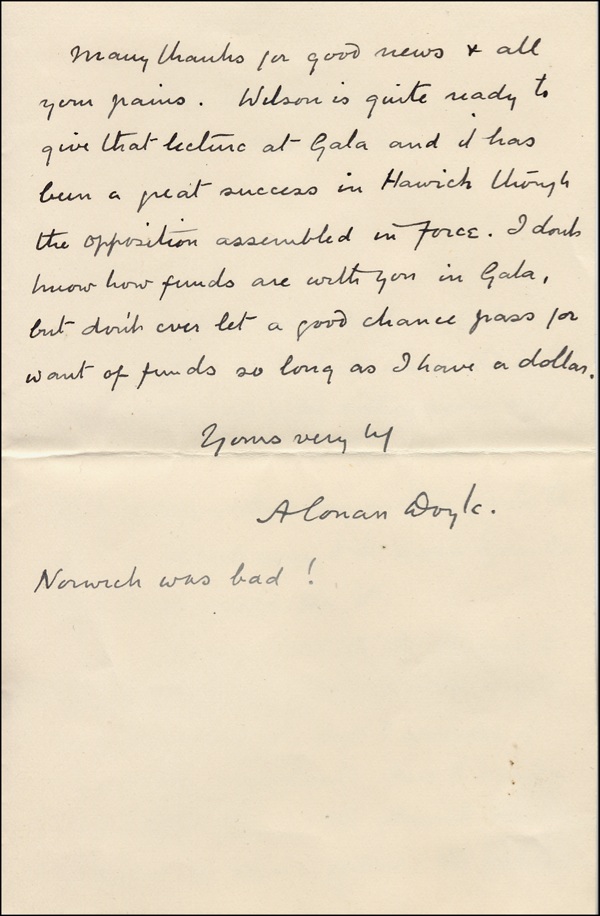 Many thanks for good news & all
your pains. Wilson is quite ready to
give that lecture at Gala and it has
been a great success in Hawick though
the opposition assembled in Force. I don't
know how funds are with you in Gala,
but don't ever let a good chance pass for
want of funds so long as I have a dollar.
Yours very
A Conan Doyle.
Norwich was bad!